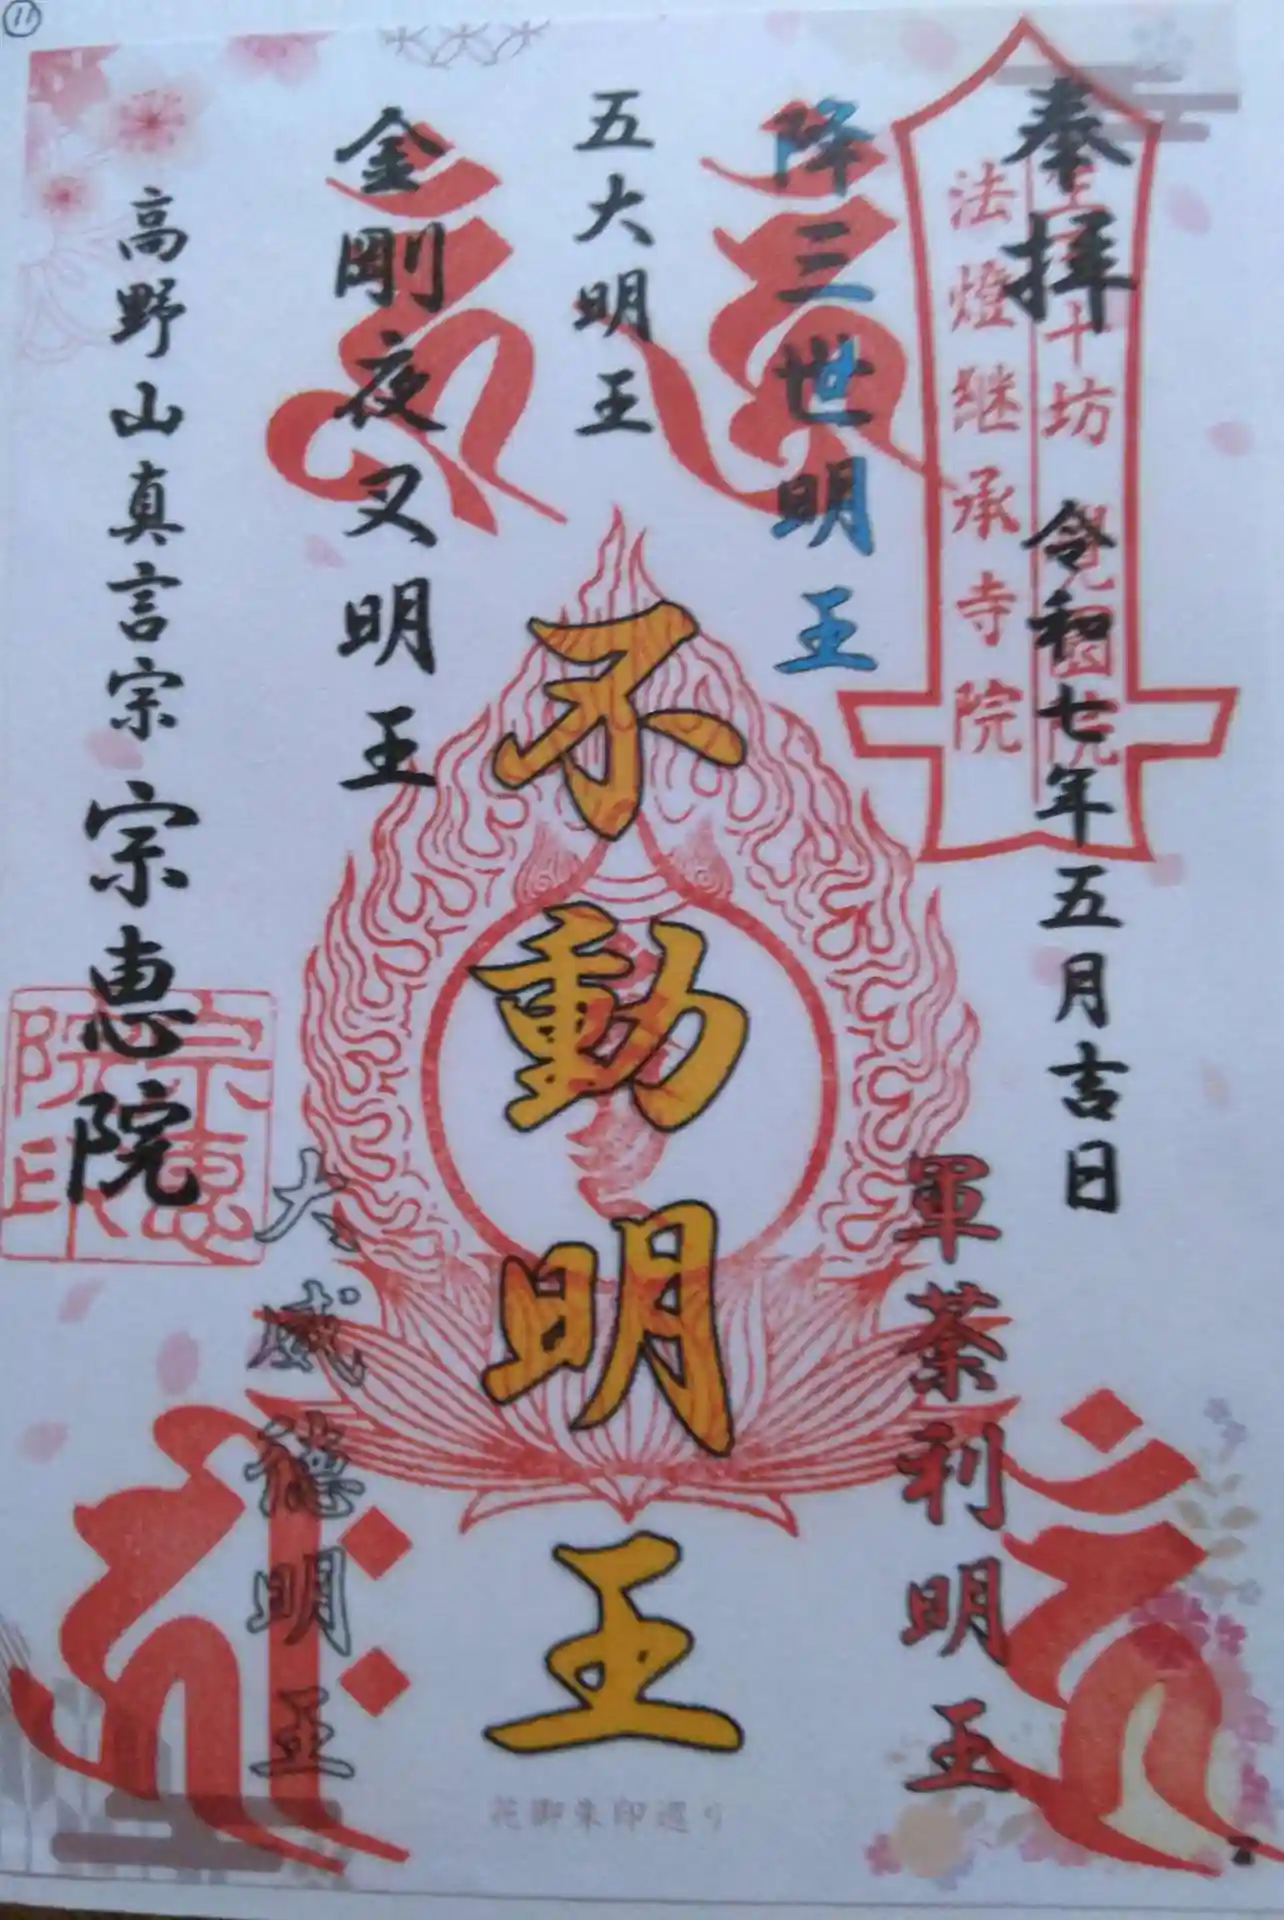 奉拝 令和七年五月吉日
十坊
法燈継承寺院
降三世明王
軍荼利明王
五大明王
不動明王
金剛夜叉明王
大威徳明王
高野山真言宗 宗恵院
宗恵院印
花御朱印巡り
11